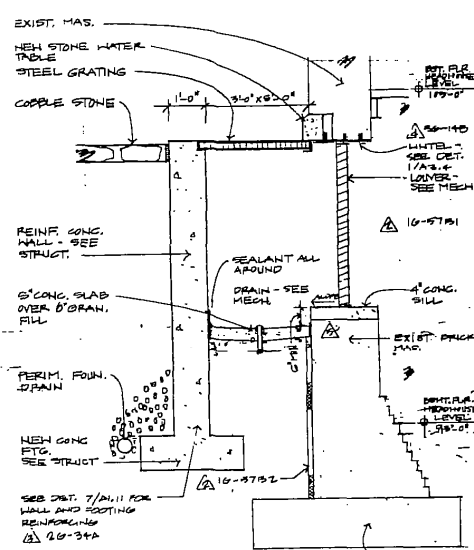 EXIST. MAS.
NEW STONE WATER
TABLE
STEEL GRATING
COBBLE STONE
1'-0"
EST. FLR.
HEADHOUSE
LEVEL
LINTEL -
SEE DET.
1/A3.4
LOUVER -
SEE MECH
16-57B1
REINF. CONC.
WALL - SEE
STRUCT.
SEALANT ALL
AROUND
DRAIN - SEE
MECH.
5" CONC. SLAB
OVER 6" GRAN.
FILL
4" CONC.
SILL
EXIST BRICK
MAS.
PERIM. FOUN.
DRAIN
BSMT. FLR.
HEADHOUSE
LEVEL
NEW CONC
FTG.
SEE STRUCT
16-57B2
SEE DET. 7/A1.11 FOR
WALL AND FOOTING
REINFORCING
26-34A